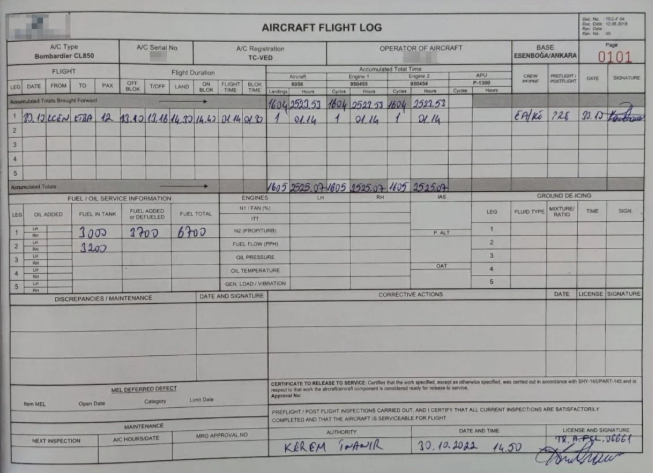 AIRCRAFT FLIGHT LOG
A/C Type
Bombardier CL850
A/C Serial No
A/C Registration
TC-VED
OPERATOR OF AIRCRAFT
BASE
ESENBOĞA/ANKARA
Page
0101
FLIGHT
Flight Duration
Accumulated Total Time
Aircraft
Engine 1
Engine 2
APU
LEG DATE FROM TO PAX OFF BLOK T/OFF LAND ON BLOK FLIGHT TIME BLOK TIME Landings Hours Cycles Hours Cycles Hours Cycles Hours DATE SIGNATURE
Accumulated Totals Brought Forward
1604 2523.53 1604 2523.53 1604 2523.53
1 12 13.10 13.16 14.30 14.40 01.14 01.30 1 01.14 1 01.14 1 01.14
2
3
4
5
Accumulated Totals
1605 2525.07 1605 2525.07 1605 2525.07
FUEL / OIL SERVICE INFORMATION
ENGINES
LH
RH
IAS
GROUND DE-ICING
LEG OIL ADDED FUEL IN TANK FUEL ADDED or DEFUELED FUEL TOTAL
N1 / FAN (%)
ITT
LEG FLUID TYPE MIXTURE/ RATIO TIME SIGN
1 LH RH 3000 3700 6700
2 LH RH 3200
3 LH RH
4 LH RH
5 LH RH
P. ALT
FUEL FLOW (PPH)
OIL PRESSURE
OAT
OIL TEMPERATURE
GEN. LOAD / VIBRATION
1
2
3
4
5
DISCREPANCIES / MAINTENANCE
DATE AND SIGNATURE
CORRECTIVE ACTIONS
DATE LICENSE SIGNATURE
MEL DEFERRED DEFECT
Item MEL Open Date Category Limit Date
CERTIFICATE TO RELEASE TO SERVICE: Certifies that the work specified, except as otherwise specified, was carried out in accordance with SHY-145/PART-145 and in
respect to that work the aircraft/aircraft component is considered ready for release to service.
Approval No:
PREFLIGHT / POST FLIGHT INSPECTIONS CARRIED OUT, AND I CERTIFY THAT ALL CURRENT INSPECTIONS ARE SATISFACTORILY
COMPLETED AND THAT THE AIRCRAFT IS SERVICEABLE FOR FLIGHT
MAINTENANCE
NEXT INSPECTION A/C HOURS/DATE MRG APPROVAL NO
AUTHORITY
DATE AND TIME
LICENSE AND SIGNATURE
KEREM İNANIR
30.10.2022 14.50